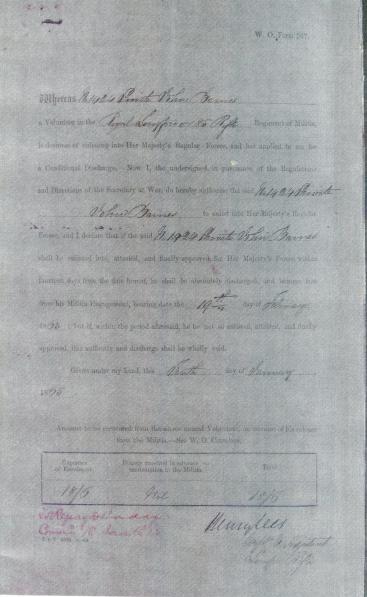 W. O. Form 507.
Whereas No. 1424 Private John Barnes
a Volunteer in the Royal Longford Rifles Regiment of Militia,
is desirous of enlisting into Her Majesty's Regular Forces, and has applied to me for
a Conditional Discharge. Now I, the undersigned, in pursuance of the Regulations
and Directions of the Secretary at War, do hereby authorise the said No 1424 Private
John Barnes to enlist into Her Majesty's Regular
Forces, and I declare that if the said No 1424 Private John Barnes
shall be enlisted into, attested, and finally approved for Her Majesty's Forces within
fourteen days from the date hereof, he shall be absolutely discharged, and become free
from his Militia Engagement, bearing date the 19th day of February
but if, within the period aforesaid, he be not so enlisted, attested, and finally
approved, this authority and discharge shall be wholly void.
Given under my hand, this Tenth day of January
Amount to be recovered from the above named Volunteer, on account of Enrolment
into the Militia.—See W. O. Circulars.
Expenses of Enrolment.
Bounty received in advance on Total
10/6 Nil 10/6
Henry Lees